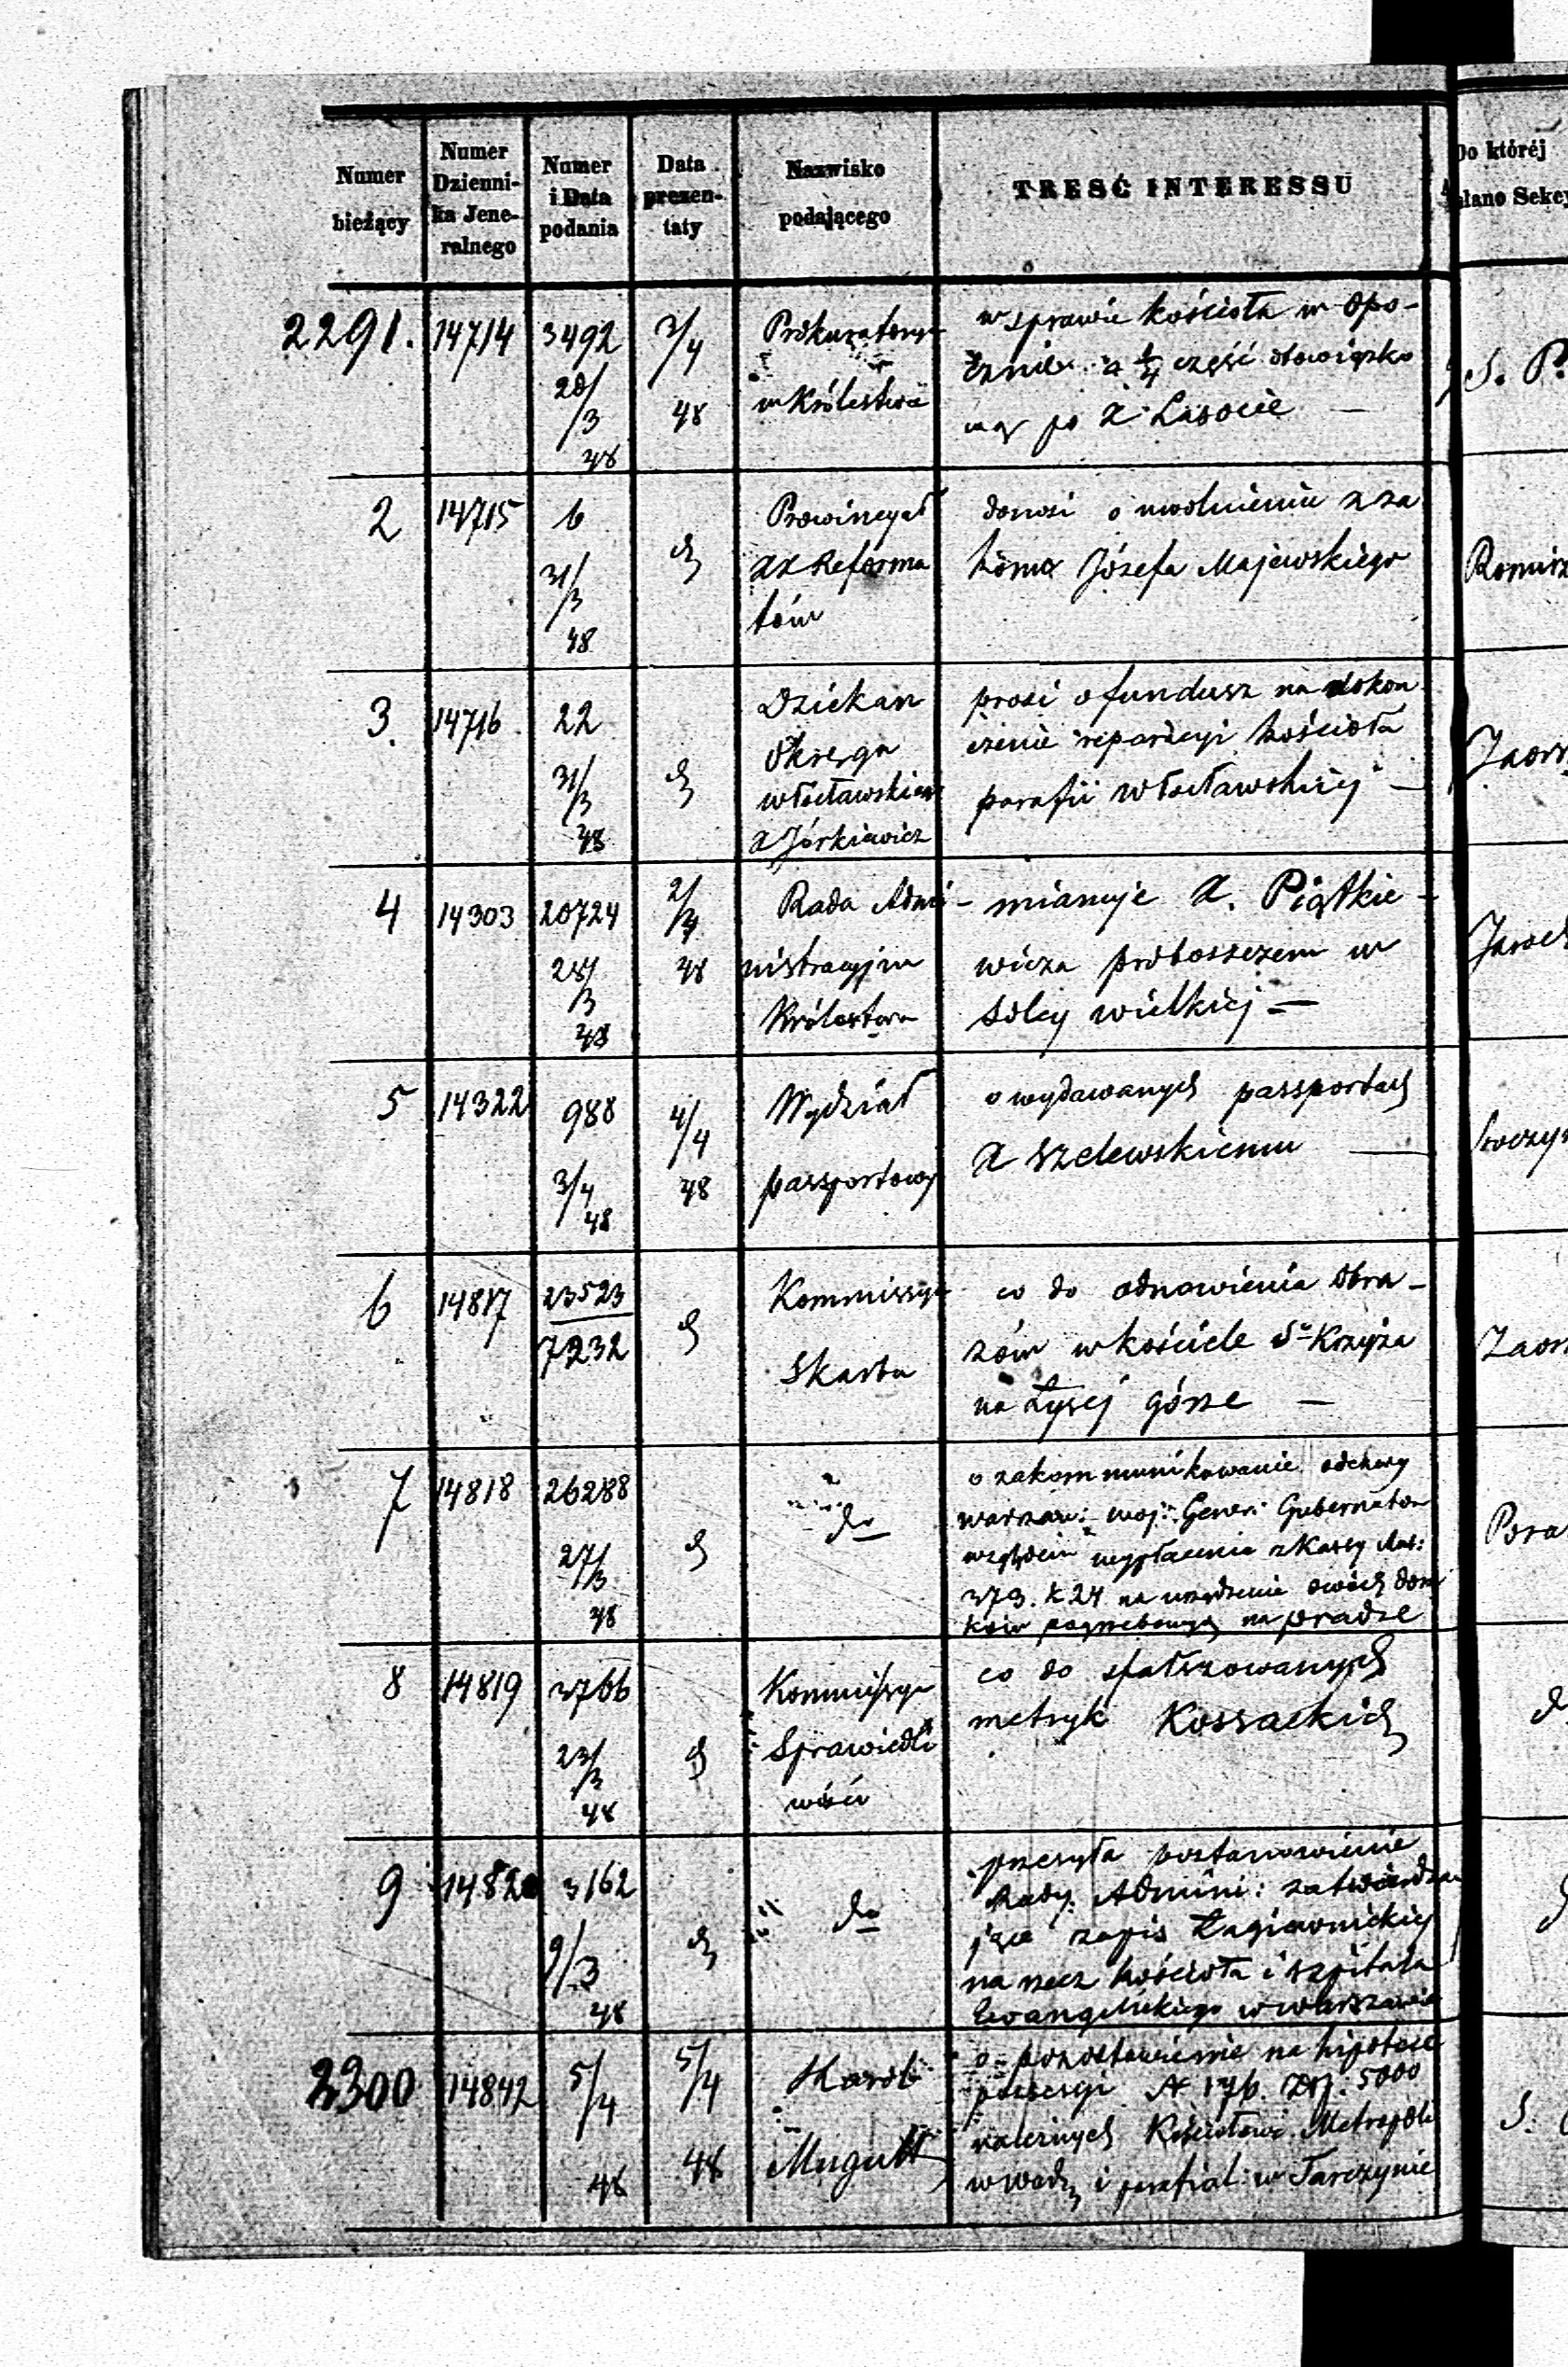 Numer bieżący
Numer Dzienni-ka Jene-ralnego
Numer i Data podania
Data prezen-taty
Nazwisko podającego
TREŚĆ INTERESSU
Do któréj
słano Sekcy
2291. 14714 3492 28/3 48 3/4 48
Prokuratorya
w Królestwie
w sprawie kościoła w Opo-
cznie a 1/4 część obowiązko
wą po X Lasocie —
S. P.
2 14715 6 31/3 48 d
Prowincyał
XX Reforma
tów
donosi o uwolnieniu z za
konu Józefa Majewskiego
3. 14716. 22 31/3 48 d
Dziekan
Okręgu
włocławskiego
X Jórkiewicz
prosi o fundusz na dokoń
czenie reparacyi kościoła
parafii włocławskiéj —
4 14303 20724 28/3 48 2/4 48
Rada Admi-
nistracyjna
Królestwa
mianuje X. Piątkie-
wicza proboszczem w
Solcy wielkiej —
5 14322 988 3/4 48 4/4 48
Wydział
passportowy
o wydawanych passportach
X Szelewskiemu —
6 14817 23523 7232 d
Kommissya
Skarbu
co do odnowienia Obra-
zów w kościele Sgo Krzyża
na Łysej górze —
7 14818 26288 27/3 48 d
do
o zakommunikowanie odezwy
warszaw: woj: Gener: Gubernatora
względem wypłacenia z Kassy
373. k 24 na urządzenie dwóch dom
ków pogrzebowych na pradze
8 14819 3766 23/3 48 d
Kommissya
Sprawiedli
wości
co do sfałszowanych
metryk Kossackich
9 14820 3162 9/3 48 d
do
przesyła postanowienie
Rady Admini: zatwierdza
jące zapis Łagiewnickiej
na rzecz kościoła i szpitala
Ewangelickiego w warszawie
2300 14842 5/4 48 5/4 48
Karol
o pozostawienie na hipotece
possesyi N 176. Złp: 5000
należnych Kościołowi Metropoli
i parafial: w Tarczynie